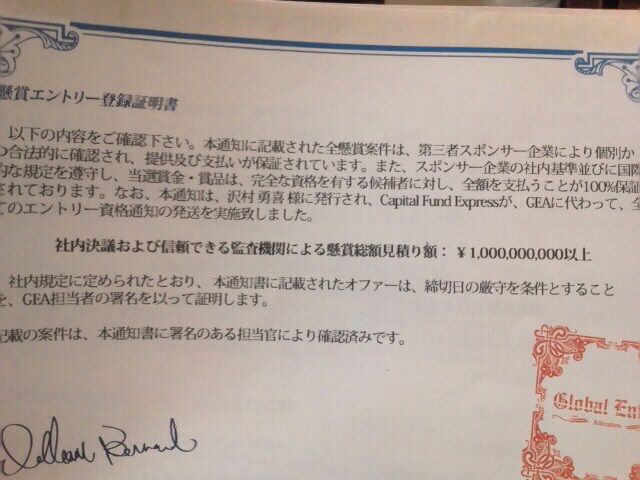 懸賞エントリー登録証明書
以下の内容をご確認下さい。本通知に記載された全懸賞案件は、第三者スポンサー企業により個別か
つ合法的に確認され、提供及び支払いが保証されています。また、スポンサー企業の社内基準並びに国際
的な規定を遵守し、当選賞金・賞品は、完全な資格を有する候補者に対し、全額を支払うことが100%保証
されております。なお、本通知は、沢村 勇喜 様に発行され、Capital Fund Expressが、GEAに代わって、全
てのエントリー資格通知の発送を実施致しました。
社内決議および信頼できる監査機関による懸賞総額見積り額：￥1,000,000,000以上
社内規定に定められたとおり、本通知書に記載されたオファーは、締切日の厳守を条件とすること
を、GEA担当者の署名を以って証明します。
記載の案件は、本通知書に署名のある担当官により確認済みです。
Global En